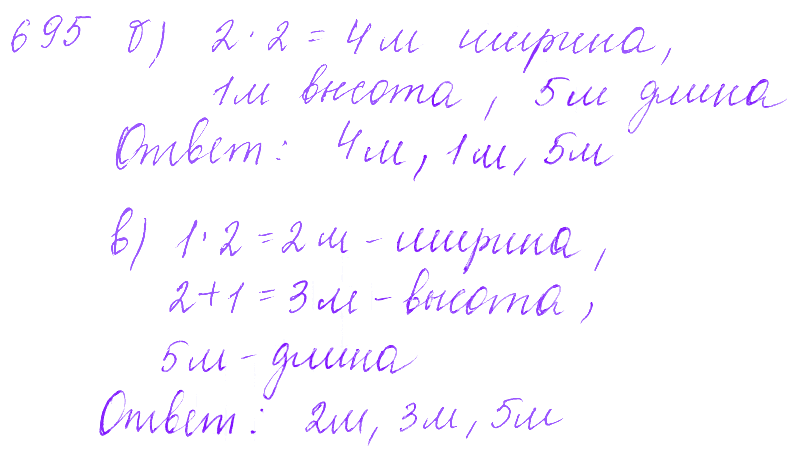 695 б) 2·2=4м ширина,
1м высота, 5м длина
Ответ: 4м, 1м, 5м
в) 1·2=2м - ширина,
2+1=3м - высота,
5м - длина
Ответ: 2м, 3м, 5м